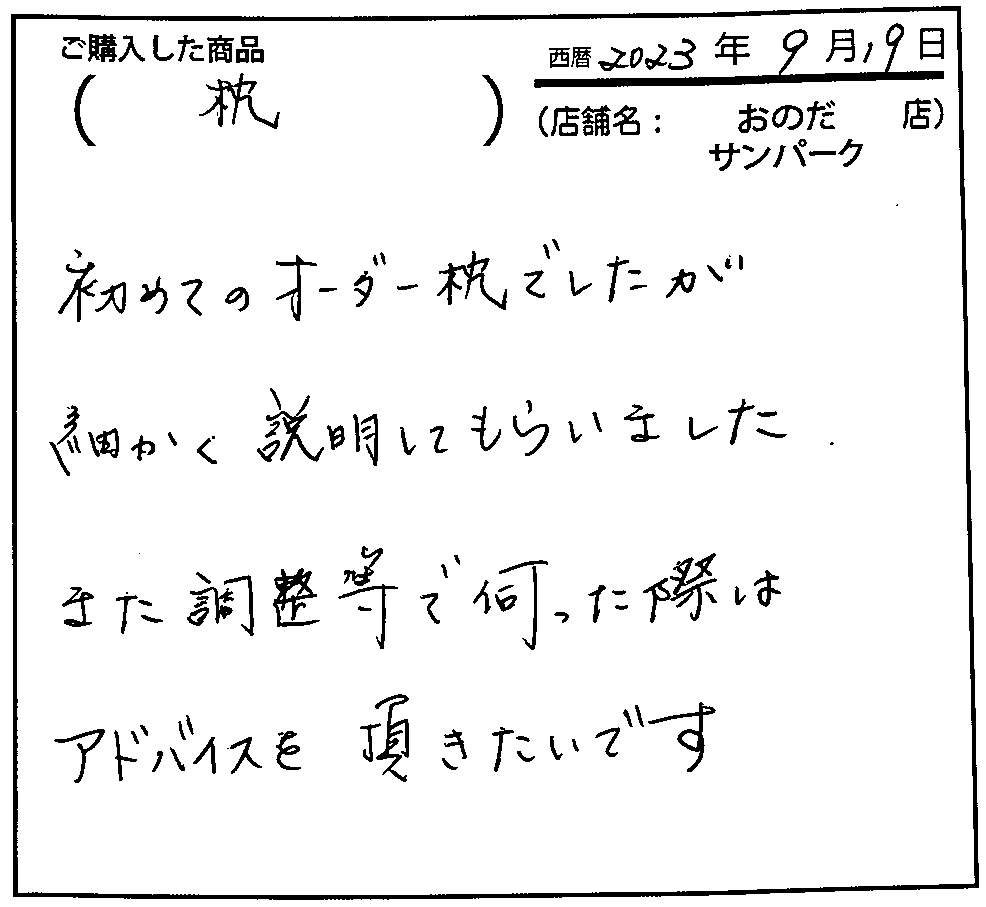 ご購入した商品
西暦 2023 年 9 月 19 日
( 枕 )
(店舗名： おのだサンパーク 店)
初めてのオーダー枕でしたが
細かく説明してもらいました.
また調整等で伺った際は
アドバイスを頂きたいです